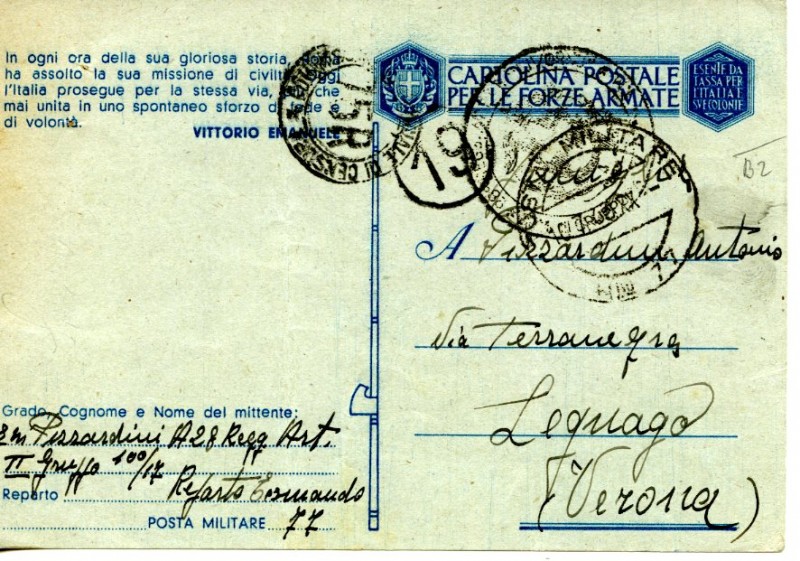 In ogni ora della sua gloriosa storia, Roma
ha assolto la sua missione di civiltà. Oggi
l'Italia prosegue per la stessa via, più che
mai unita in uno spontaneo sforzo di fede e
di volontà.
VITTORIO EMANUELE
CARTOLINA POSTALE
PER LE FORZE ARMATE
ESENTE DA
TASSA PER
L'ITALIA E
SUE COLONIE
75R
19
POSTA MILITARE
B2
A Pizzardini Antonio
Via Terranegra
Legnago
(Verona)
Grado, Cognome e Nome del mittente:
Pizzardini A 28 Regg Art.
II Gruppo 100/17
Reparto Reparto Comando
POSTA MILITARE 77